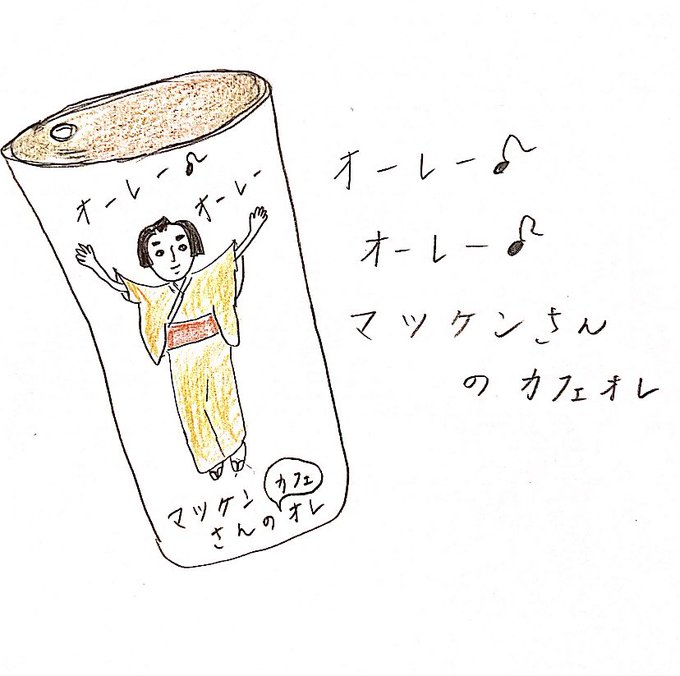 オーレー♪
オーレー
マツケン
さんのオレ
カフェ
オーレー♪
オーレー♪
マツケンさん
のカフェオレ